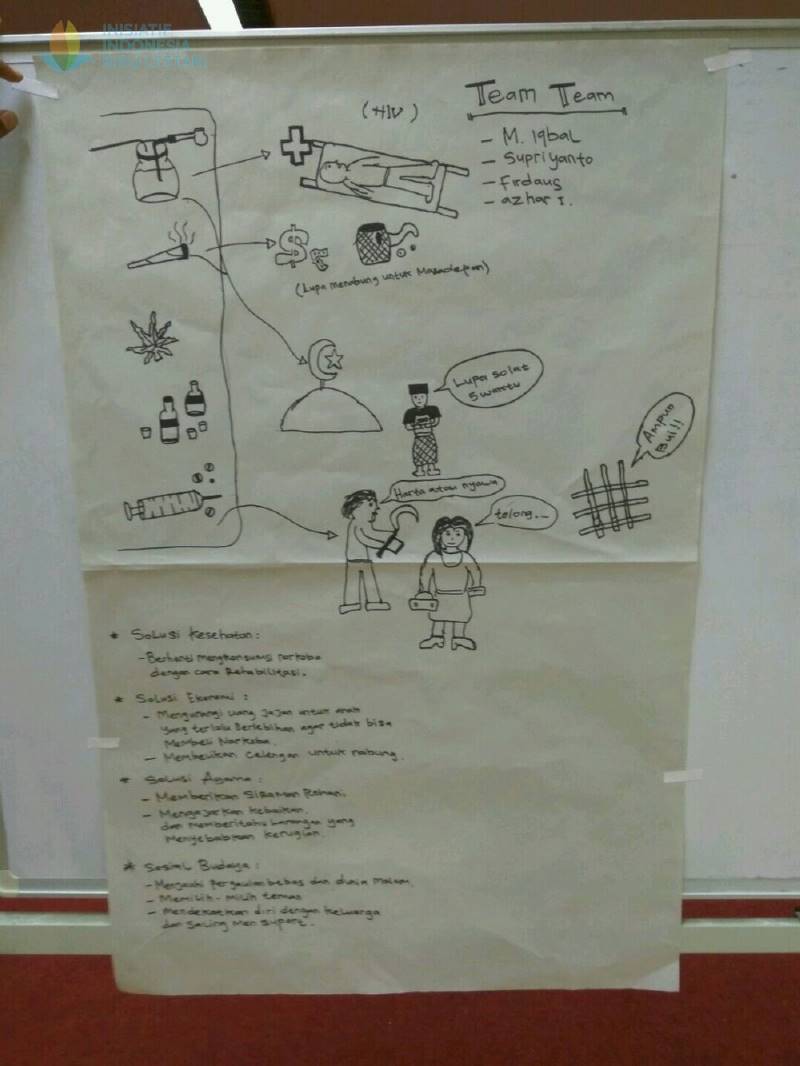 INISIATIF
INDONESIA
(HIV)
Team Team
- M. Iqbal
- Supriyanto
- Firdaus
- azhar I.
$
(Lupa menabung untuk Masadepan)
Lupa solat
5 waktu
Ampun
Bui!!
Harta atau nyawa
tolong...
* Solusi Kesehatan:
- Berhenti mengkonsumsi narkoba
dengan cara Rehabilitasi.
* Solusi Ekonomi :
- Mengurangi uang jajan untuk anak
yang terlalu Berlebihan agar tidak bisa
Membeli Narkoba.
- Membelikan Celengan untuk nabung.
* Solusi Agama :
- Memberikan Siraman Rohani.
- Mengajarkan Kebaikan.
dan Memberitahu Larangan yang
Menyebabkan Kerugian.
* Sosial Budaya :
- Menjauhi Pergaulan bebas dan dunia Malam.
- Memilih-Milih teman
- Mendekatkan diri dengan Keluarga
dan Saling Men suport.